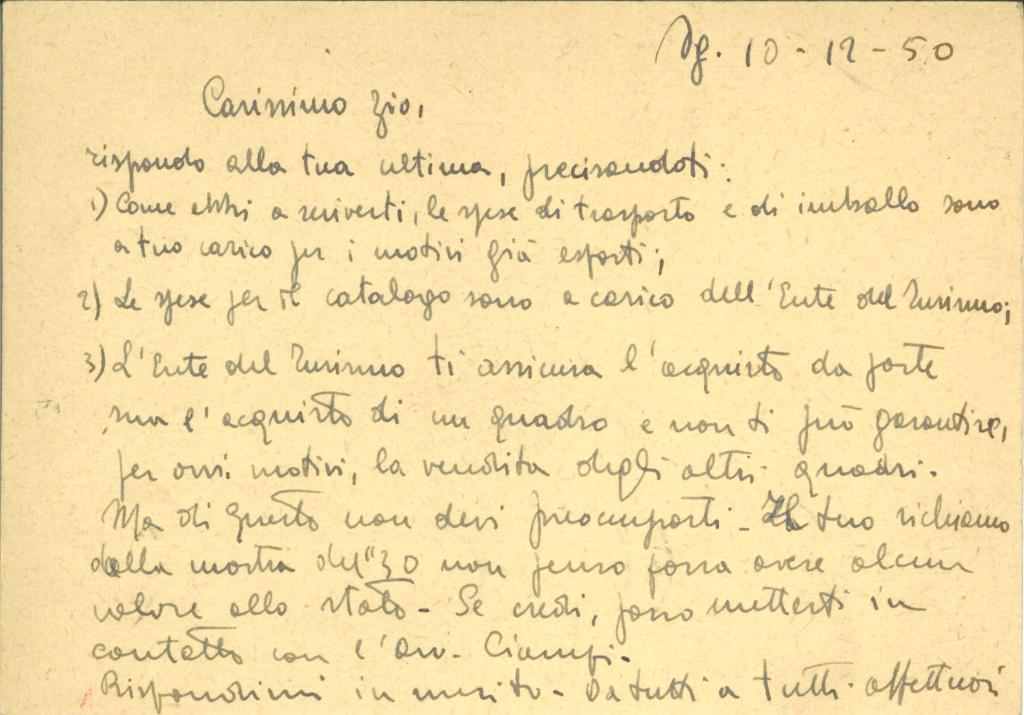 10-12-50
Carissimo Zio,
rispondo alla tua ultima, precisandoti:
1) Come ebbi a scriverti, le spese di trasporto e di imballo sono
a tuo carico per i motivi già esposti;
2) Le spese per il catalogo sono a carico dell'Ente del Turismo;
3) L'Ente del Turismo ti assicura l'acquisto da parte
sua l'acquisto di un quadro e non ti può garantire,
per ovvi motivi, la vendita degli altri quadri.
Ma di questo non devi preoccuparti - Il tuo richiamo
della mostra del "30 non penso possa avere alcun
valore allo stato - Se credi, posso metterti in
contatto con l'Avv. Ciampi.
Rispondimi in merito - Da tutti a tutti affettuosi